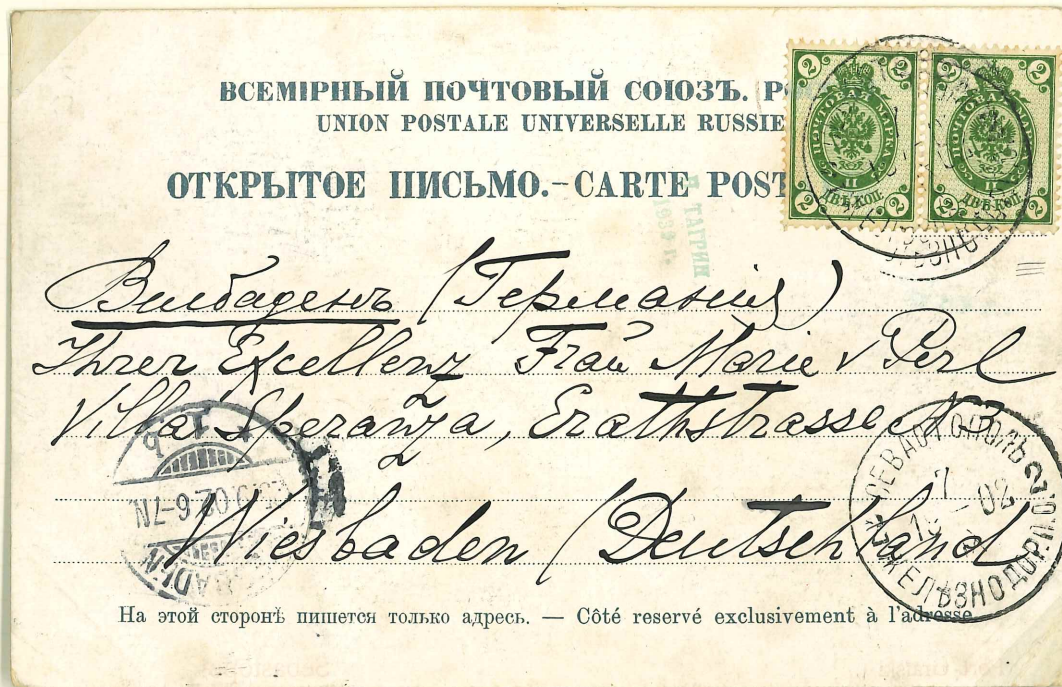 ВСЕМІРНЫЙ ПОЧТОВЫЙ СОЮЗЪ.
UNION POSTALE UNIVERSELLE RUSSIE
ОТКРЫТОЕ ПИСЬМО.-CARTE POST
2 2 2 2
ПОЧТОВАЯ МАРКА
II
ДВѢ КОП.
2 2 2 2
ПОЧТОВАЯ МАРКА
II
ДВѢ КОП.
ТАГРИН
Висбаденъ (Германия)
Ihrer Excellenz Frau Marie v Perl
Villa Speranza, Erathstrasse № 3
Wiesbaden (Deutschland
02 6-7N
СЕВАСТОПОЛЬ 2
7
02
ЖЕЛѢЗНОДОРОЖ
На этой сторонѣ пишется только адресъ. — Côté reservé exclusivement à l'adresse.